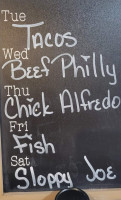 Tue
Tacos
Wed
Beef Philly
Thu
Chick Alfredo
Fri
Fish
Sat
Sloppy Joe